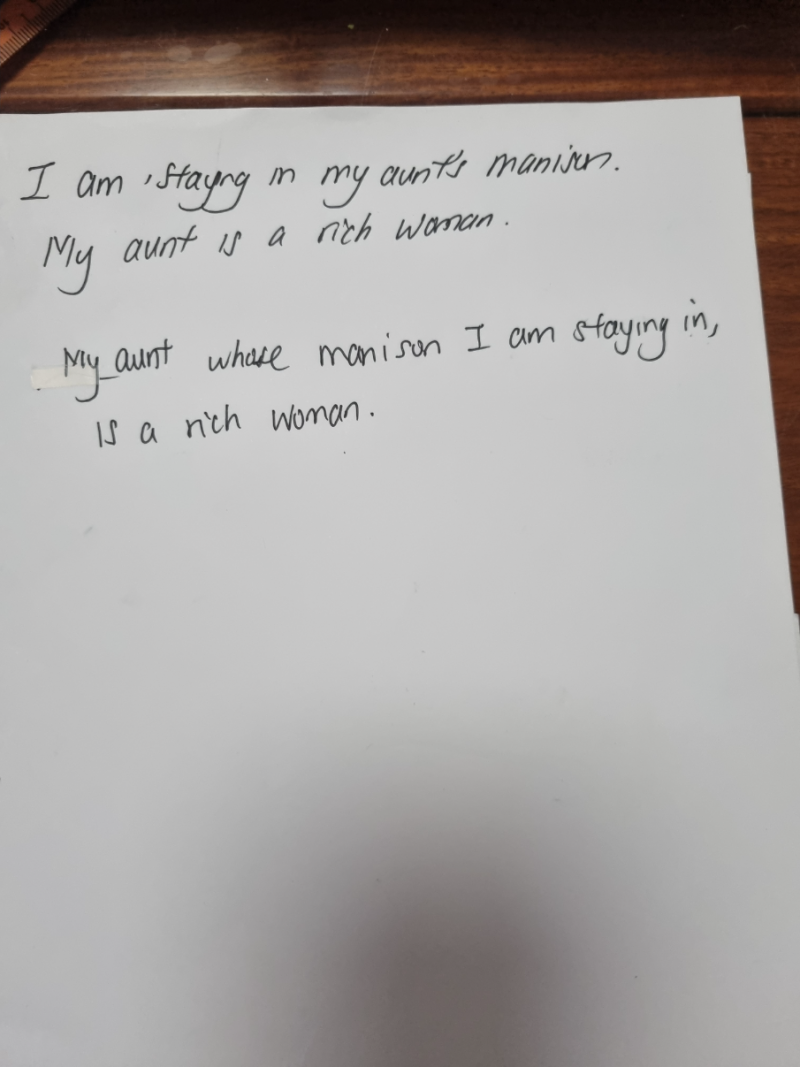 I am stayng in my aunt's manison.
My aunt is a rich woman.
My aunt whose manison I am staying in,
is a rich woman.